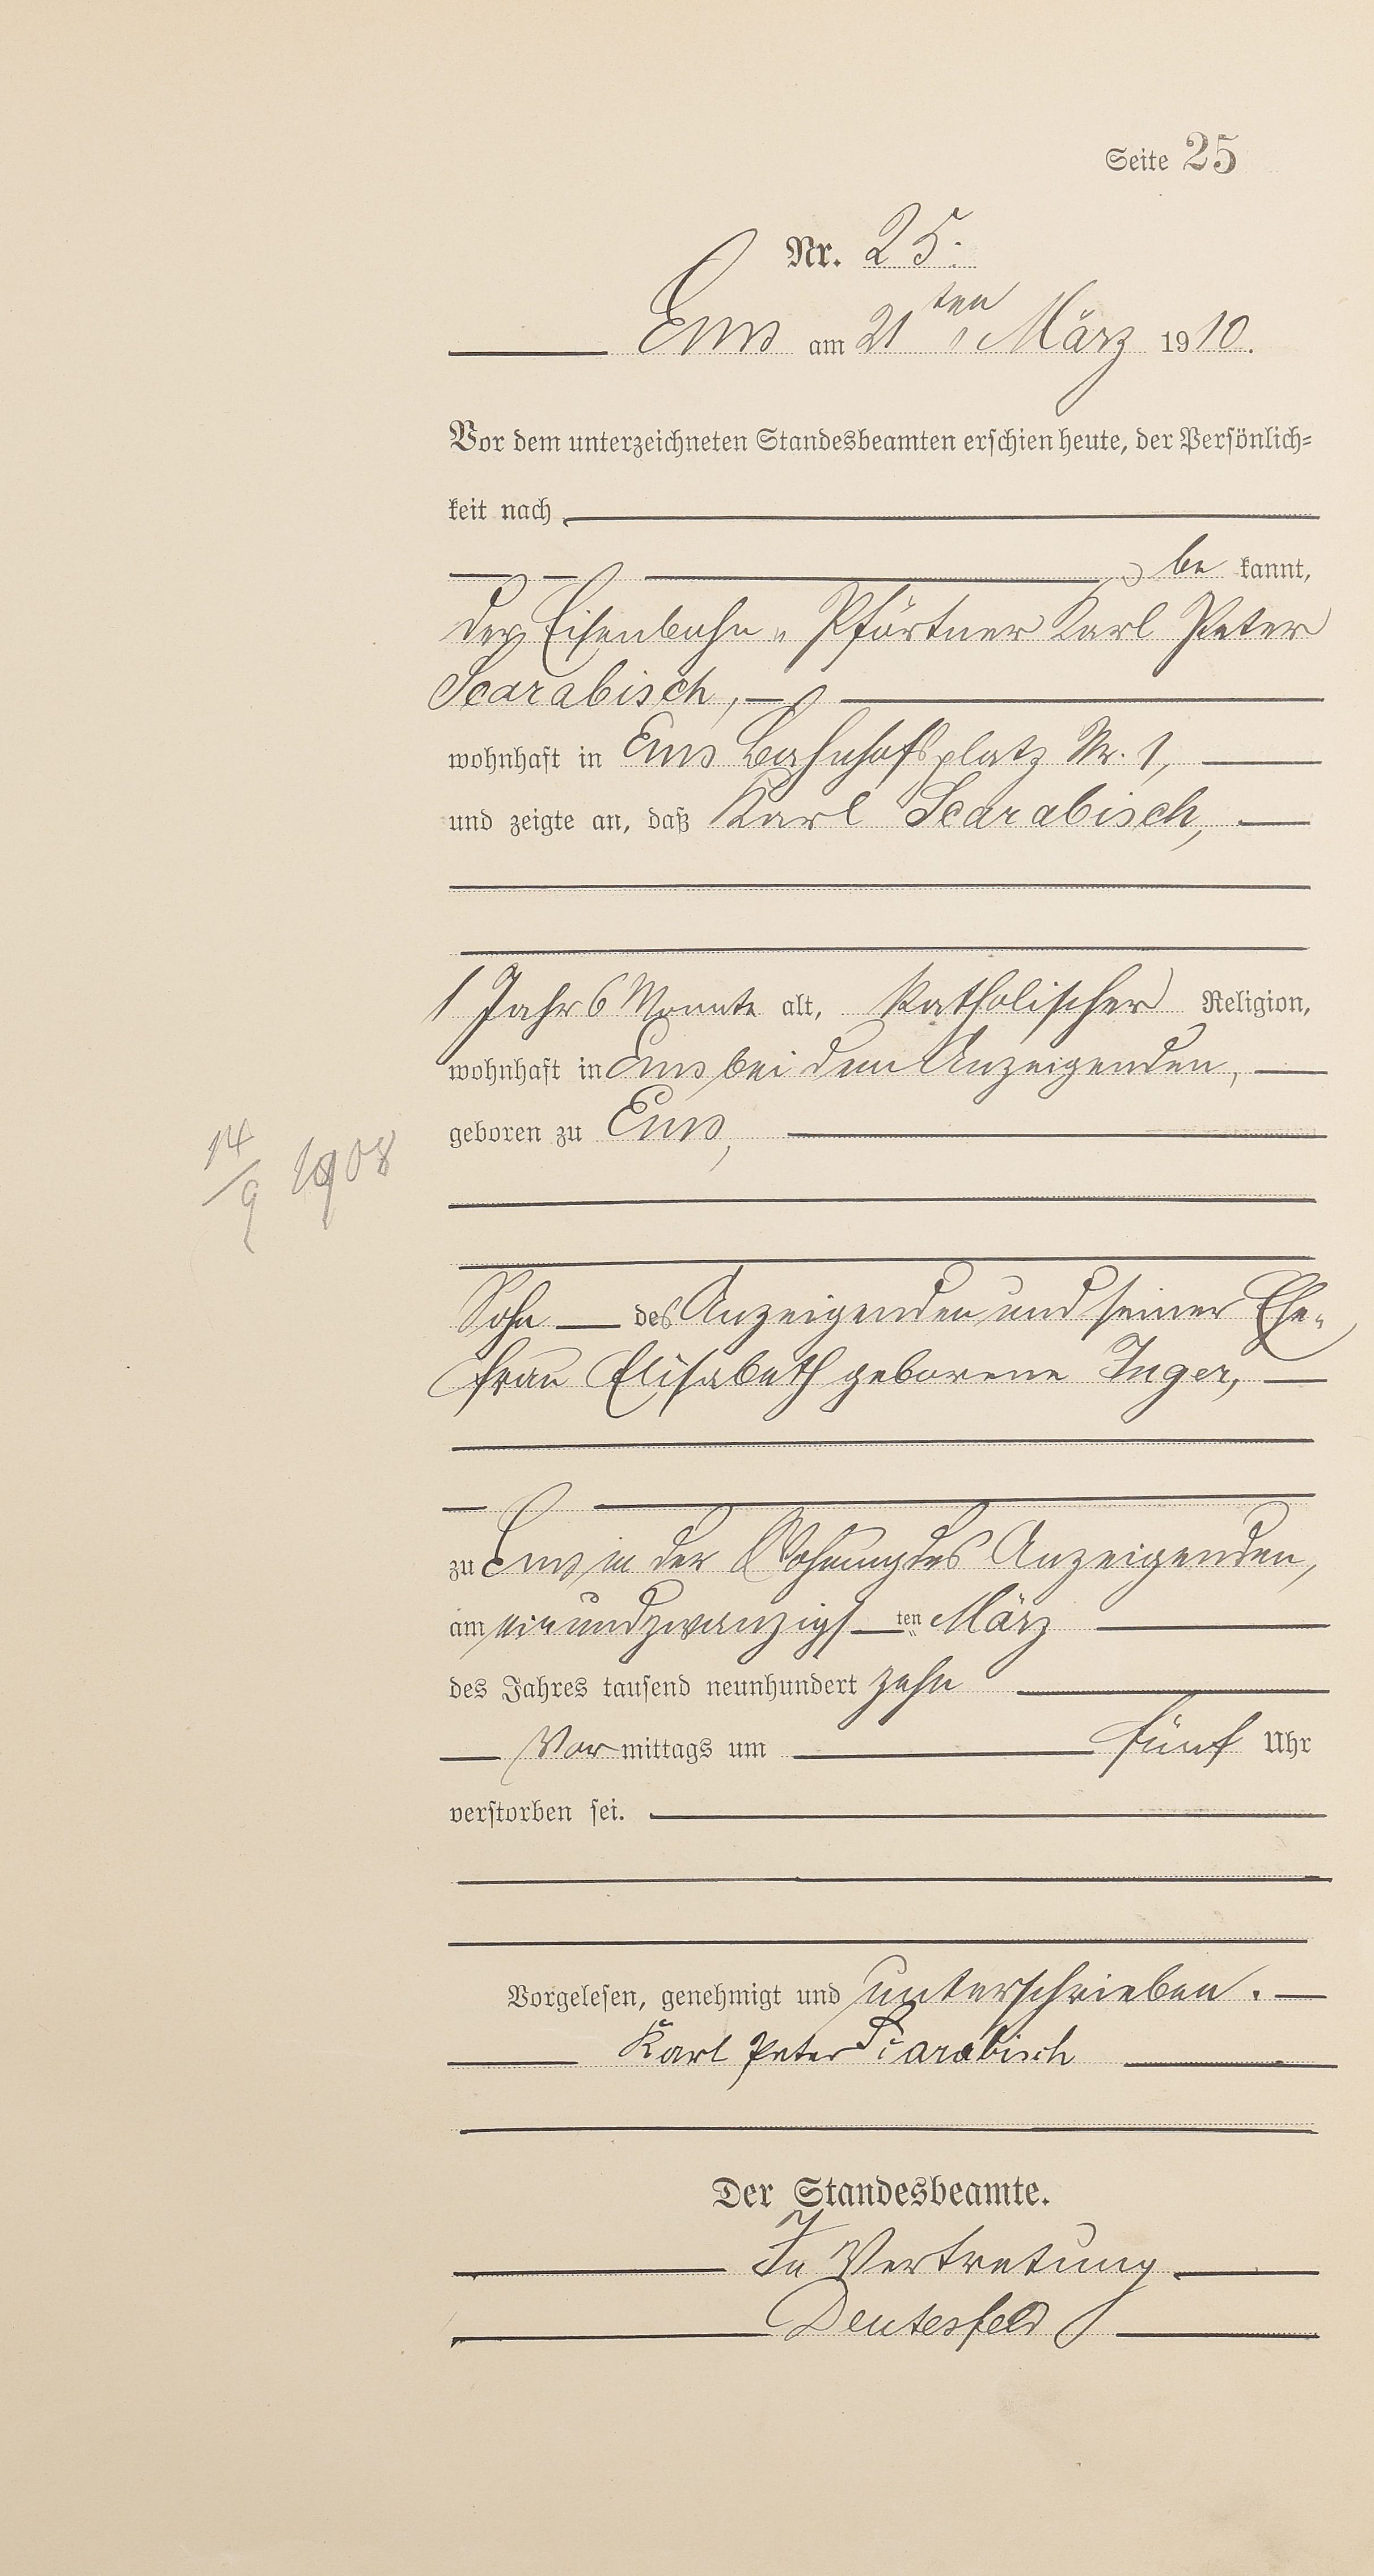 Seite 25
Nr. 25.
Ems am 21ten März 1910.
Vor dem unterzeichneten Standesbeamten erschien heute, der Persönlich-
keit nach
be kannt,
der Eisenbahn-Pförtner Karl Peter
Scarabisch,
wohnhaft in Ems Bahnhofsplatz Nr. 1,
und zeigte an, daß Karl Scarabisch,
1 Jahr 6 Monate alt, katholischer Religion,
wohnhaft in Ems bei dem Anzeigenden,
geboren zu Ems,
14/9 1908
Sohn des Anzeigenden und seiner Ehe-
frau Elisabeth geborene Inger,
zu Ems in der Wohnung des Anzeigenden,
am einundzwanzigsten März
des Jahres tausend neunhundert zehn
Vormittags um fünf Uhr
verstorben sei.
Vorgelesen, genehmigt und unterschrieben.
Karl Peter Scarabisch
Der Standesbeamte.
In Vertretung
Deutesfeld